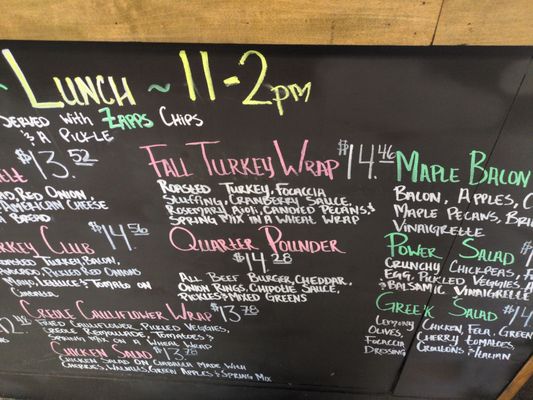 ~ LUNCH ~ 11-2pm
SERVED WITH ZAPPS CHIPS
& A PICKLE
$13.52
RED ONION,
AMERICAN CHEESE
BREAD
TURKEY CLUB $14.56
ROASTED TURKEY, BACON,
AVOCADO, PICKLED RED ONIONS
MAYO, LETTUCE & TOMATO ON
CIABATTA
CREOLE CAULIFLOWER WRAP $13.78
FRIED CAULIFLOWER, PICKLED VEGGIES,
CREOLE REMOULADE, TOMATOES &
SPRING MIX ON A WHEAT WRAP
CHICKEN SALAD $13.78
CHICKEN SALAD ON CIABATTA MADE WITH
CHERRIES, WALNUTS, GREEN APPLES & SPRING MIX
FALL TURKEY WRAP $14.46
ROASTED TURKEY, FOCACCIA
STUFFING, CRANBERRY SAUCE,
ROSEMARY AIOLI, CANDIED PECANS, &
SPRING MIX IN A WHEAT WRAP
QUARTER POUNDER
$14.28
ALL BEEF BURGER, CHEDDAR,
ONION RINGS, CHIPOTLE SAUCE,
PICKLES & MIXED GREENS
MAPLE BACON
BACON, APPLES,
MAPLE PECANS,
VINAIGRETTE
POWER SALAD
CRUNCHY CHICKPEAS,
EGG, PICKLED VEGGIES,
& BALSAMIC VINAIGRETTE
GREEK SALAD $14
LEMONY CHICKEN, FETA, GREEN
OLIVES, CHERRY TOMATOES,
FOCACCIA CROUTONS & ITALIAN
DRESSING